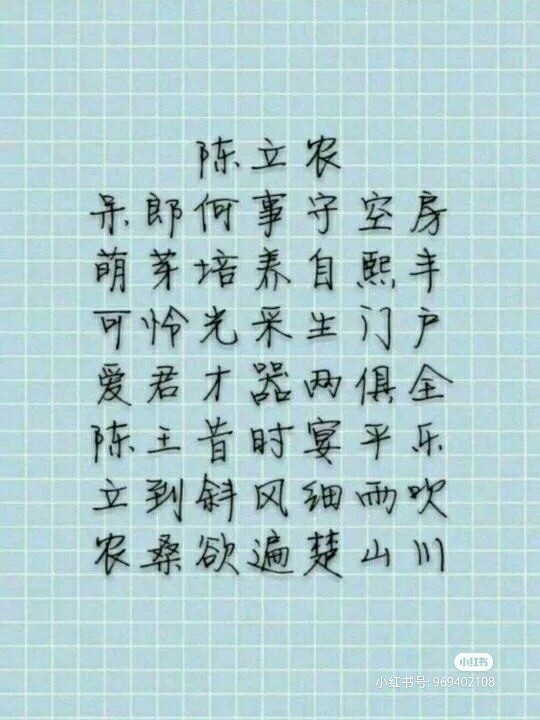 陈立农
呆郎何事守空房
萌芽培养自熙丰
可怜光采生门户
爱君才器两俱全
陈王昔时宴平乐
立到斜风细雨吹
农桑欲遍楚山川
小红书
小红书号: 969402108